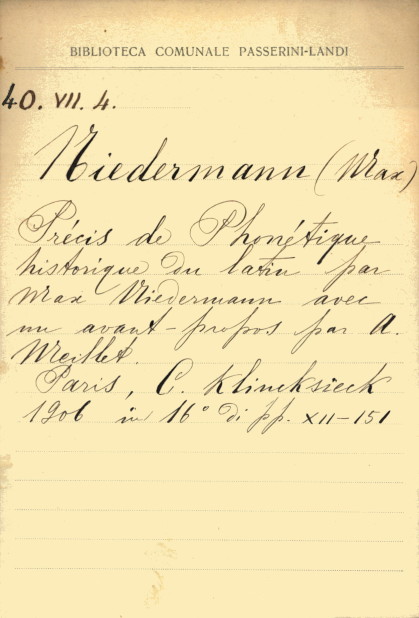 BIBLIOTECA COMUNALE PASSERINI-LANDI
40. VII. 4.
Niedermann (Max)
Précis de Phonétique
historique du latin par
Max Niedermann avec
un avant-propos par A.
Meillet.
Paris, C. Klincksieck
1906 in 16° di pp. XII-151